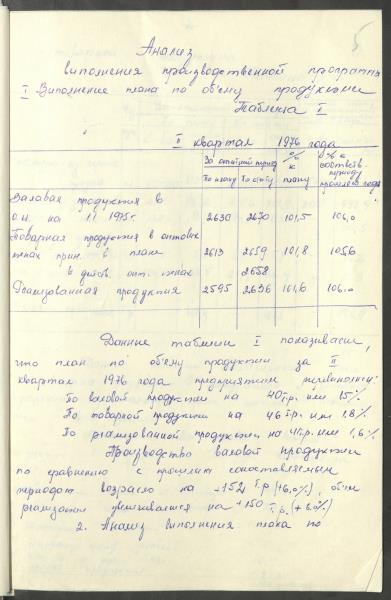 5
Анализ
выполнения производственной программы
I Выполнение плана по объему продукции
Таблица I
II квартал 1976 года
За отчетный период % к в % к
По плану По отчету плану соответств. периоду прошлого года
Валовая продукция в
о.ц. на 1.I 1975г. 2630 2670 101,5 106,0
Товарная продукция в оптовых
ценах прин. в плане 2613 2659 101,8 105,6
в действ. опт. ценах 2658
Реализованная продукция 2595 2636 101,6 106,0
Данные таблицы I показывают,
что план по объему продукции за II
квартал 1976 года предприятием перевыполнен:
По валовой продукции на 40 т.р. или 1,5%
По товарной продукции на 46 т.р. или 1,8%
По реализованной продукции на 41 т.р. или 1,6%
Производство валовой продукции
по сравнению с прошлым сопоставляемым
периодом возрасло на +152 т.р (+6,0%), объем
реализации увеличивается на +150 т.р. (+6,0%)
2. Анализ выполнения плана по